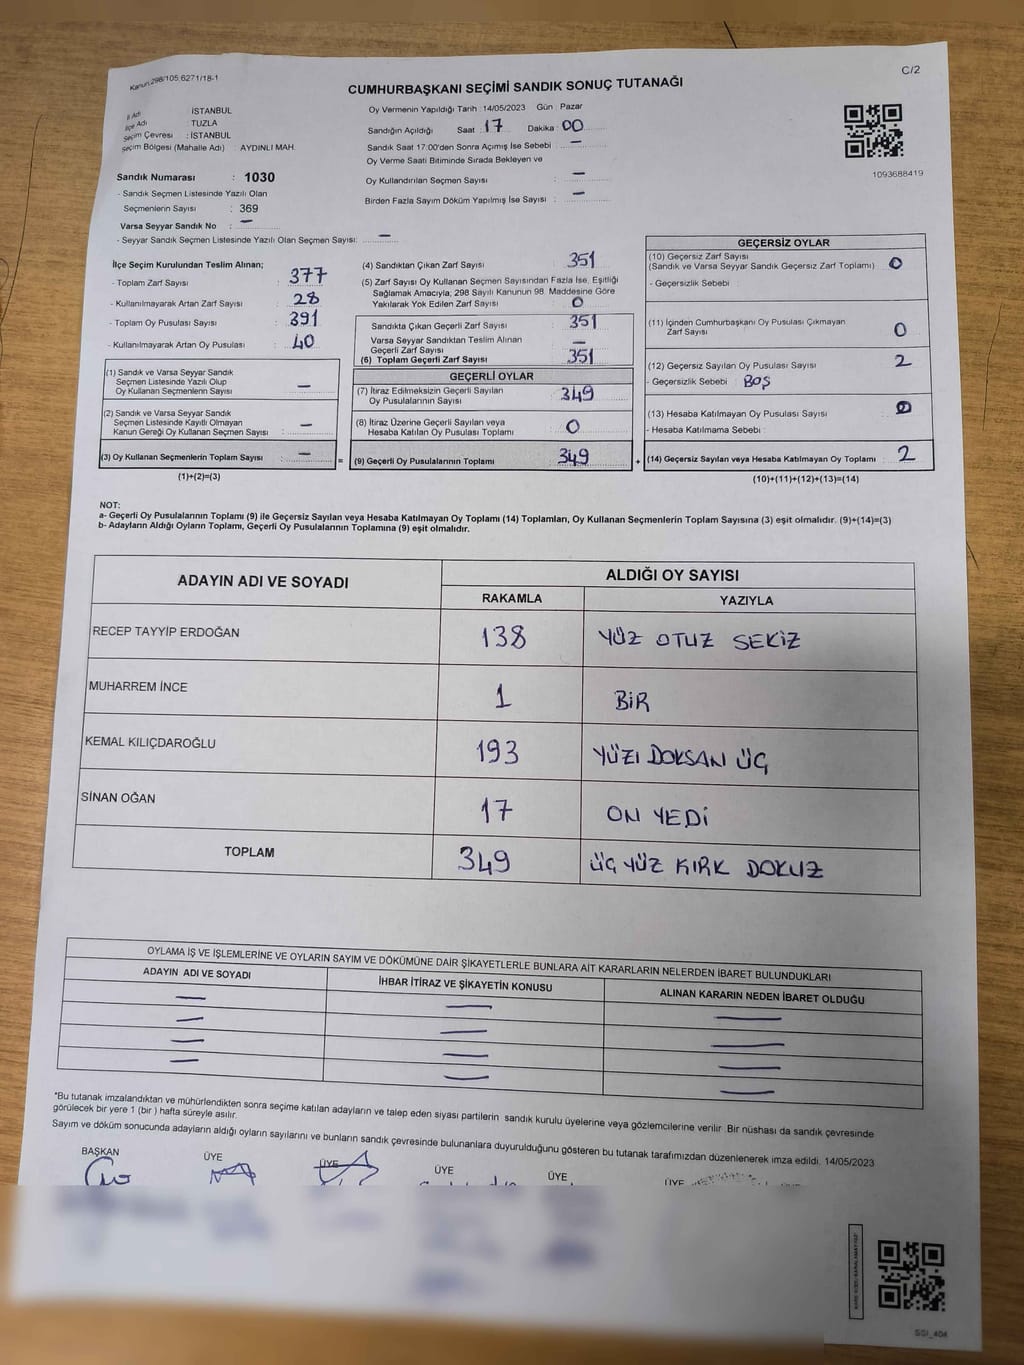 Kanun:298/105;6271/18-1
CUMHURBAŞKANI SEÇİMİ SANDIK SONUÇ TUTANAĞI
C/2
İl Adı : İSTANBUL
İlçe Adı : TUZLA
Seçim Çevresi : İSTANBUL
Seçim Bölgesi (Mahalle Adı) : AYDINLI MAH.
Sandık Numarası : 1030
- Sandık Seçmen Listesinde Yazılı Olan
Seçmenlerin Sayısı : 369
Varsa Seyyar Sandık No : —
- Seyyar Sandık Seçmen Listesinde Yazılı Olan Seçmen Sayısı: —
Oy Vermenin Yapıldığı Tarih : 14/05/2023 Gün : Pazar
Sandığın Açıldığı Saat : 17 Dakika : 00
Sandık Saat 17:00'den Sonra Açımış İse Sebebi : —
Oy Verme Saati Bitiminde Sırada Bekleyen ve
Oy Kullandırılan Seçmen Sayısı : —
Birden Fazla Sayım Döküm Yapılmış İse Sayısı : —
1093688419
İlçe Seçim Kurulundan Teslim Alınan;
- Toplam Zarf Sayısı : 377
- Kullanılmayarak Artan Zarf Sayısı : 28
- Toplam Oy Pusulası Sayısı : 391
- Kullanılmayarak Artan Oy Pusulası : 40
(1) Sandık ve Varsa Seyyar Sandık
Seçmen Listesinde Yazılı Olup
Oy Kullanan Seçmenlerin Sayısı : —
(2) Sandık ve Varsa Seyyar Sandık
Seçmen Listesinde Kayıtlı Olmayan
Kanun Gereği Oy Kullanan Seçmen Sayısı : —
(3) Oy Kullanan Seçmenlerin Toplam Sayısı : —
(1)+(2)=(3)
(4) Sandıktan Çıkan Zarf Sayısı : 351
(5) Zarf Sayısı Oy Kullanan Seçmen Sayısından Fazla İse, Eşitliği
Sağlamak Amacıyla, 298 Sayılı Kanunun 98. Maddesine Göre
Yakılarak Yok Edilen Zarf Sayısı : 0
Sandıkta Çıkan Geçerli Zarf Sayısı : 351
Varsa Seyyar Sandıktan Teslim Alınan
Geçerli Zarf Sayısı : —
(6) Toplam Geçerli Zarf Sayısı : 351
GEÇERLİ OYLAR
(7) İtiraz Edilmeksizin Geçerli Sayılan
Oy Pusulalarının Sayısı : 349
(8) İtiraz Üzerine Geçerli Sayılan veya
Hesaba Katılan Oy Pusulası Toplamı : 0
= (9) Geçerli Oy Pusulalarının Toplamı : 349 +
GEÇERSİZ OYLAR
(10) Geçersiz Zarf Sayısı
(Sandık ve Varsa Seyyar Sandık Geçersiz Zarf Toplamı) : 0
- Geçersizlik Sebebi :
(11) İçinden Cumhurbaşkanı Oy Pusulası Çıkmayan
Zarf Sayısı : 0
(12) Geçersiz Sayılan Oy Pusulası Sayısı : 2
- Geçersizlik Sebebi : BOŞ
(13) Hesaba Katılmayan Oy Pusulası Sayısı :
- Hesaba Katılmama Sebebi :
(14) Geçersiz Sayılan veya Hesaba Katılmayan Oy Toplamı : 2
(10)+(11)+(12)+(13)=(14)
NOT:
a- Geçerli Oy Pusulalarının Toplamı (9) ile Geçersiz Sayılan veya Hesaba Katılmayan Oy Toplamı (14) Toplamları, Oy Kullanan Seçmenlerin Toplam Sayısına (3) eşit olmalıdır. (9)+(14)=(3)
b- Adayların Aldığı Oyların Toplamı, Geçerli Oy Pusulalarının Toplamına (9) eşit olmalıdır.
ADAYIN ADI VE SOYADI
ALDIĞI OY SAYISI
RAKAMLA YAZIYLA
RECEP TAYYİP ERDOĞAN 138 YÜZ OTUZ SEKİZ
MUHARREM İNCE 1 BİR
KEMAL KILIÇDAROĞLU 193 YÜZ DOKSAN ÜÇ
SİNAN OĞAN 17 ON YEDİ
TOPLAM 349 ÜÇ YÜZ KIRK DOKUZ
OYLAMA İŞ VE İŞLEMLERİNE VE OYLARIN SAYIM VE DÖKÜMÜNE DAİR ŞİKAYETLERLE BUNLARA AİT KARARLARIN NELERDEN İBARET BULUNDUKLARI
ADAYIN ADI VE SOYADI İHBAR İTİRAZ VE ŞİKAYETİN KONUSU ALINAN KARARIN NEDEN İBARET OLDUĞU
— — —
— — —
— — —
— — —
*Bu tutanak imzalandıktan ve mühürlendikten sonra seçime katılan adayların ve talep eden siyasi partilerin sandık kurulu üyelerine veya gözlemcilerine verilir. Bir nüshası da sandık çevresinde
görülecek bir yere 1 (bir ) hafta süreyle asılır.
Sayım ve döküm sonucunda adayların aldığı oyların sayılarını ve bunların sandık çevresinde bulunanlara duyurulduğunu gösteren bu tutanak tarafımızdan düzenlenerek imza edildi. 14/05/2023
BAŞKAN ÜYE ÜYE ÜYE ÜYE ÜYE ÜYE
SSI_404